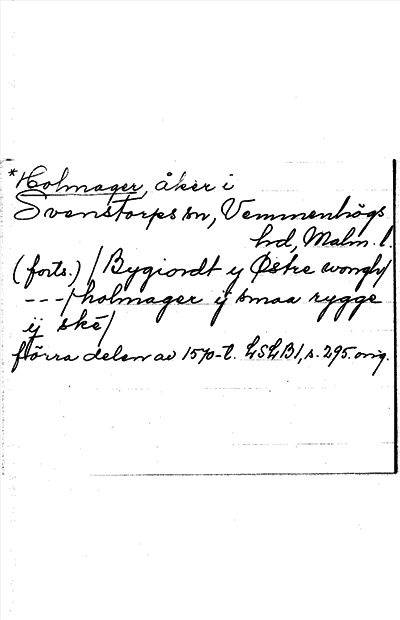 *Holmager, åker i
Svenstorps sn, Vemmenhögs
hd, Malm. l.
(forts.) / Bygiordt y Østre wongh/
--- / holmager ij smaa rygge
ij ské/
förra delen av 1570-t. LSLB1, s. 295. orig.